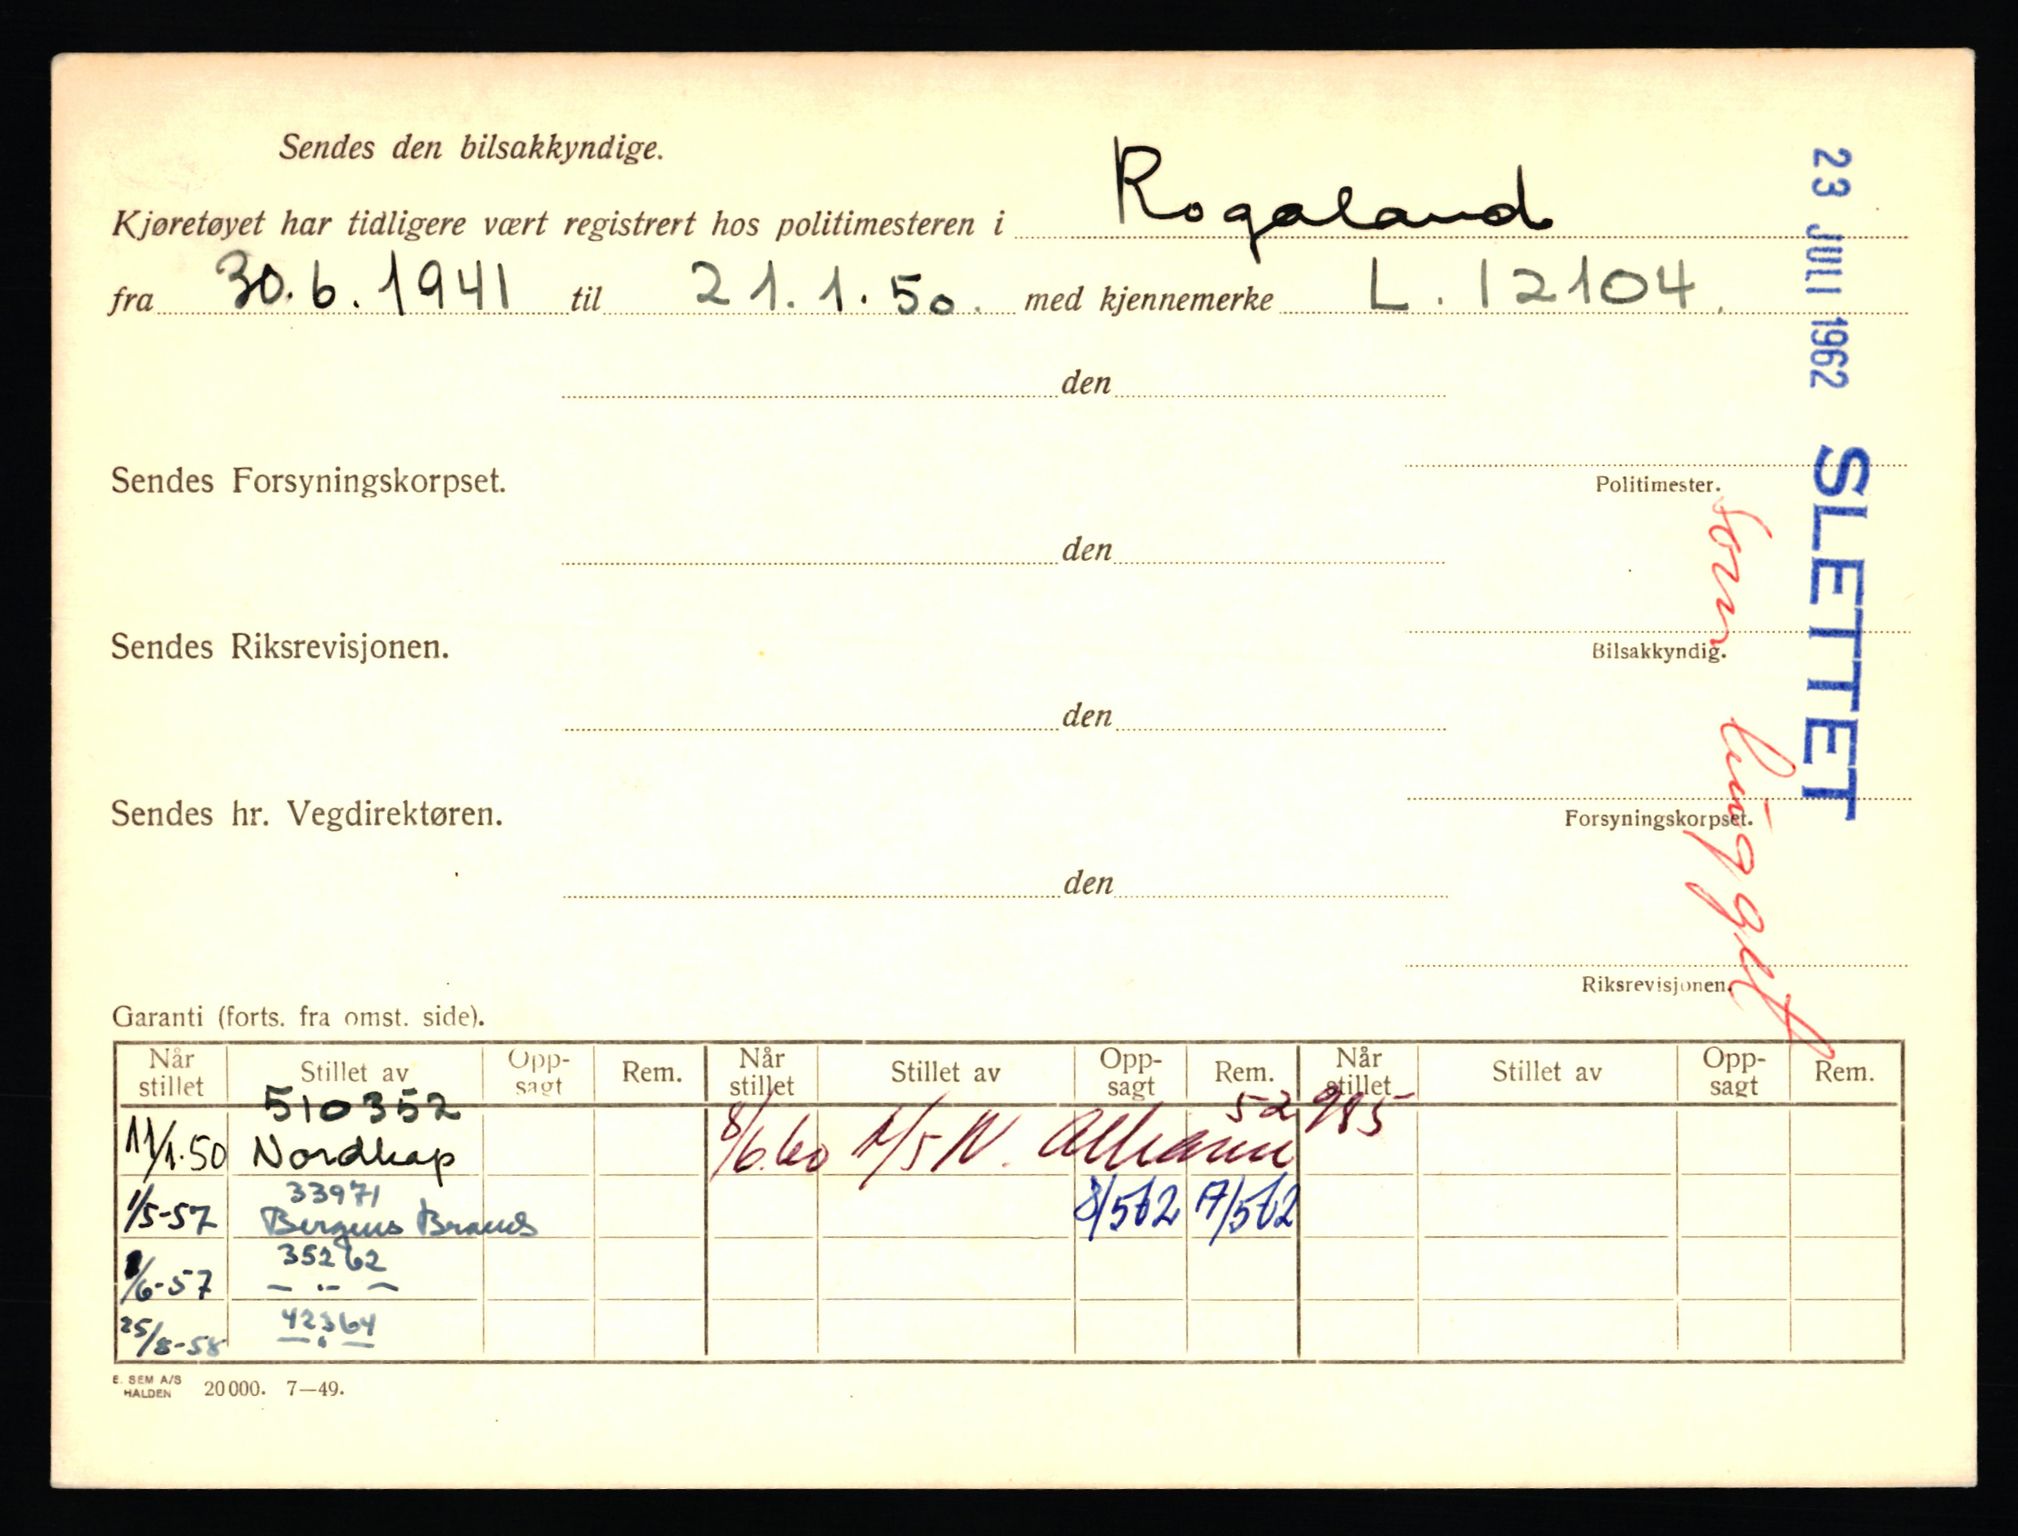 Sendes den bilsakkyndige.
Kjøretøyet har tidligere vært registrert hos politimesteren i Rogaland
fra 30.6.1941 til 21.1.50. med kjennemerke L. 12104.
23 JULI 1962
SLETTET
som hugget
den
Politimester.
Sendes Forsyningskorpset.
den
Bilsakkyndig.
Sendes Riksrevisjonen.
den
Forsyningskorpset.
Sendes hr. Vegdirektøren.
den
Riksrevisjonen.
Garanti (forts. fra omst. side).
Når stillet Stillet av Opp-sagt Rem. Når stillet Stillet av Opp-sagt Rem. Når stillet Stillet av Opp-sagt Rem.
510352 52985
11/1.50 Nordkap 8/6.60
33971
1/5-57 Bergens Brand 8/562 17/562
35262
/6-57 — " —
42364
25/8-58 — " —
E. SEM A/S
HALDEN 20000. 7—49.